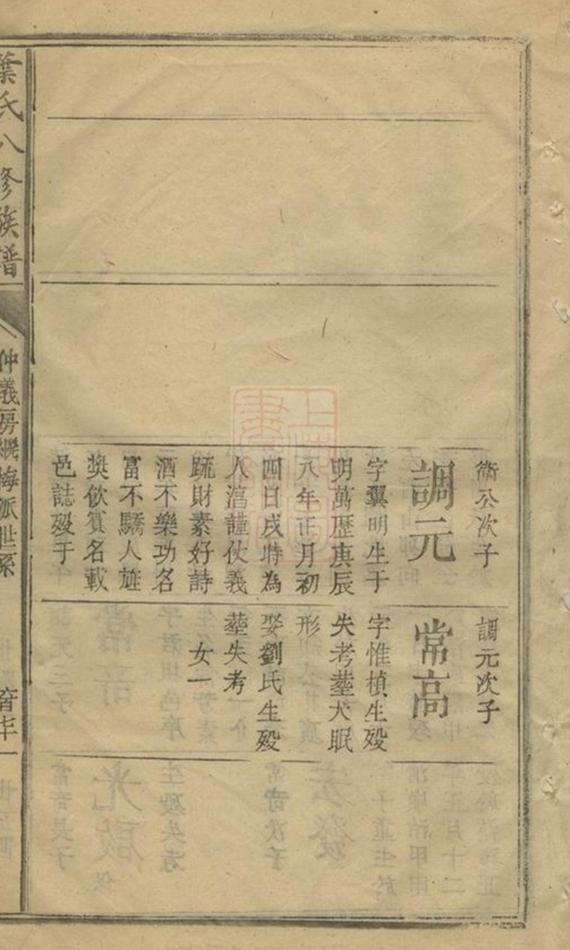 衛公次子
調元
字翼明生于
明萬歷庚辰
八年正月初
四日戌時為
人謹仗義
疏財素好詩
酒不樂功名
富不驕人旌
獎飲賓名載
邑誌殁于
調元次子
常高
字惟楨生殁
失考塟犬眠
形
娶劉氏生殁
塟失考
女一
葉氏八修族譜
仲義房
派世系